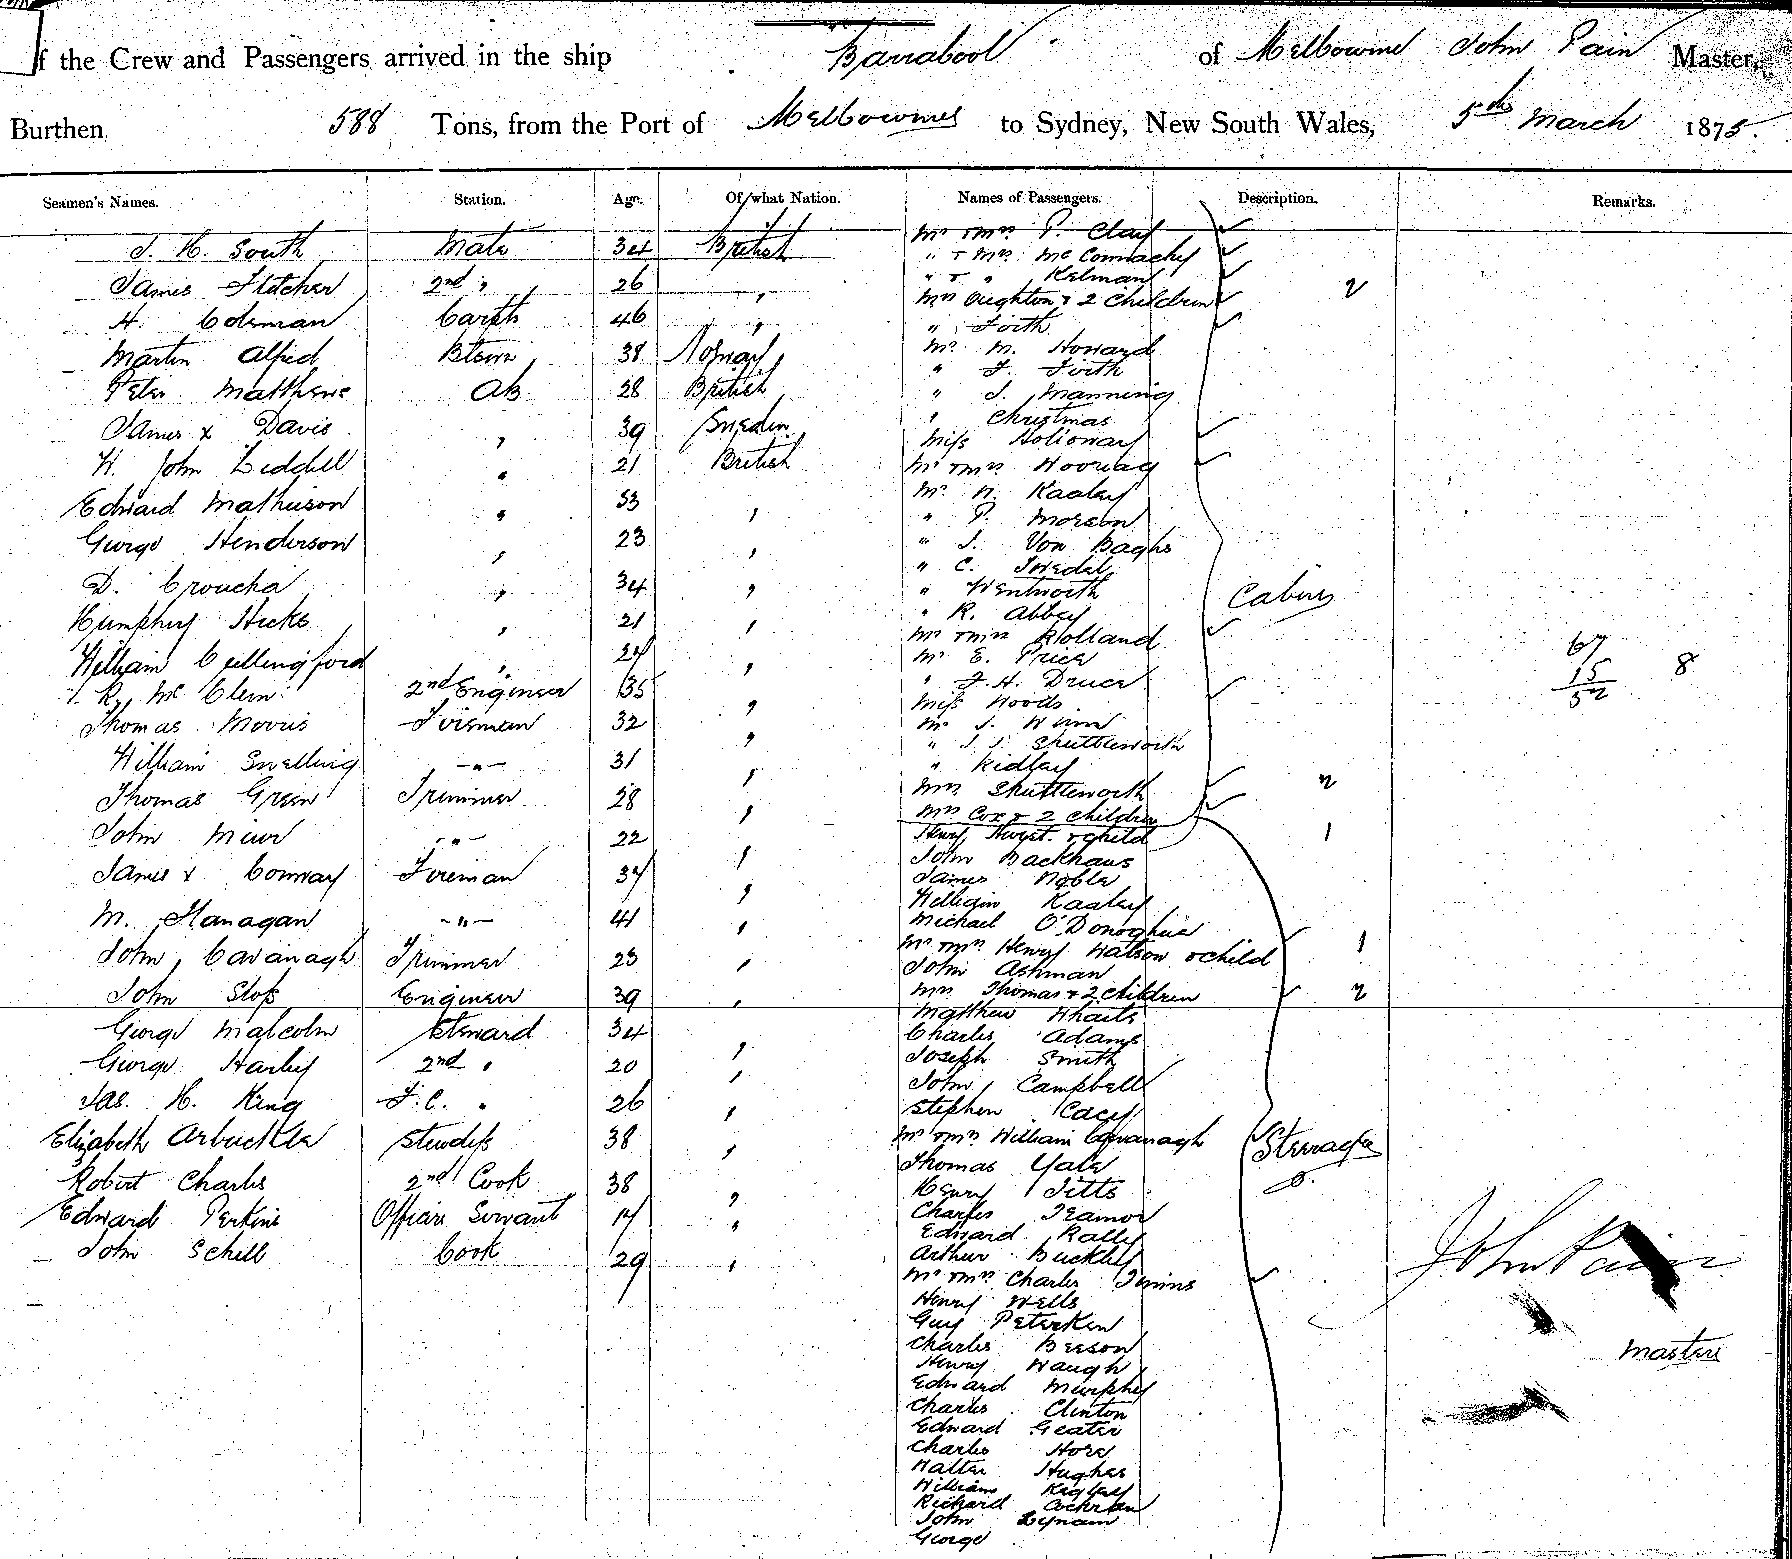 f the Crew and Passengers arrived in the ship Barrabool of Melbourne John Pain Master,
Burthen 588 Tons, from the Port of Melbourne to Sydney, New South Wales, 5th March 1875.
Seamen's Names. Station. Age. Of what Nation. Names of Passengers. Description. Remarks.
J. H. South Mate 34 British
James Fletcher 2nd " 26 "
H. Coleman Carptr 46 "
Martin Alfred 38 Norway
Peter Matthews AB 28 British
James Davis " 39 Sweden
W. John Liddell " 21 British
Edward Mathieson " 53 "
George Henderson " 23 "
D. Croucha " 34 "
Humphry Hicks " 21 "
William Cullingford "
R. Mc Clem 2nd Engineer 35 "
Thomas Morris Foisman 32 "
William Snelling -"- 31 "
Thomas Green Trimmer 28 "
John Muir -"- 22 "
James Conway Fireman "
M. Flanagan -"- 41 "
John Cavanagh Trimmer 23 "
John Sloss Engineer 39 "
George Malcolm Steward 34 "
George Harley 2nd " 20 "
Jas. H. King F.C. " 26 "
Elizabeth Arbuckle Stewdess 38 "
Robert Charles 2nd Cook 38 "
Edward Perkins Officers Servant 17 "
John Schell Cook 29 "
Mr & Mrs P. Clay
" & Mrs McConnachy
" & " Kelman
Mrs Oughton & 2 Children 2
" Forth
Mr M. Howard
" F. Forth
" J. Manning
" Christmas
Miss Holloway
Mr & Mrs
Mr H. Kaaley
" P. Morson
" J. Von
" C.
" Wentworth
" R. Abbey
Mr & Mrs Holland
Mr E. Price
" F. H. Druce
Miss Woods
Mr J. Winn
" J. J. Shuttleworth
" Ridley
Mrs Shuttleworth 2
Mrs Cox & 2 Children
Cabin
Henry Hurst & child 1
John Backhaus
James Noble
William Kaaley
Michael O'Donoghue
Mr & Mrs Henry Watson & child 1
John Ashman
Mrs Thomas & 2 Children 2
Matthew Whaite
Charles Adams
Joseph Smith
John Campbell
Stephen Cacey
Mr & Mrs William Cavanagh
Steerage
Thomas Yale
Henry Titts
Charles Seamor
Edward Rally
Arthur Buckley
Mr & Mrs Charles
Henry Wells
Guy Peterken
Charles Beeson
Henry Waugh
Edward Murphy
Charles Clinton
Edward Geater
Charles Hore
Walter Hughes
William Kegley
Richard Cochran
John Lynam
George
67
15
52
8
John Pain
Master